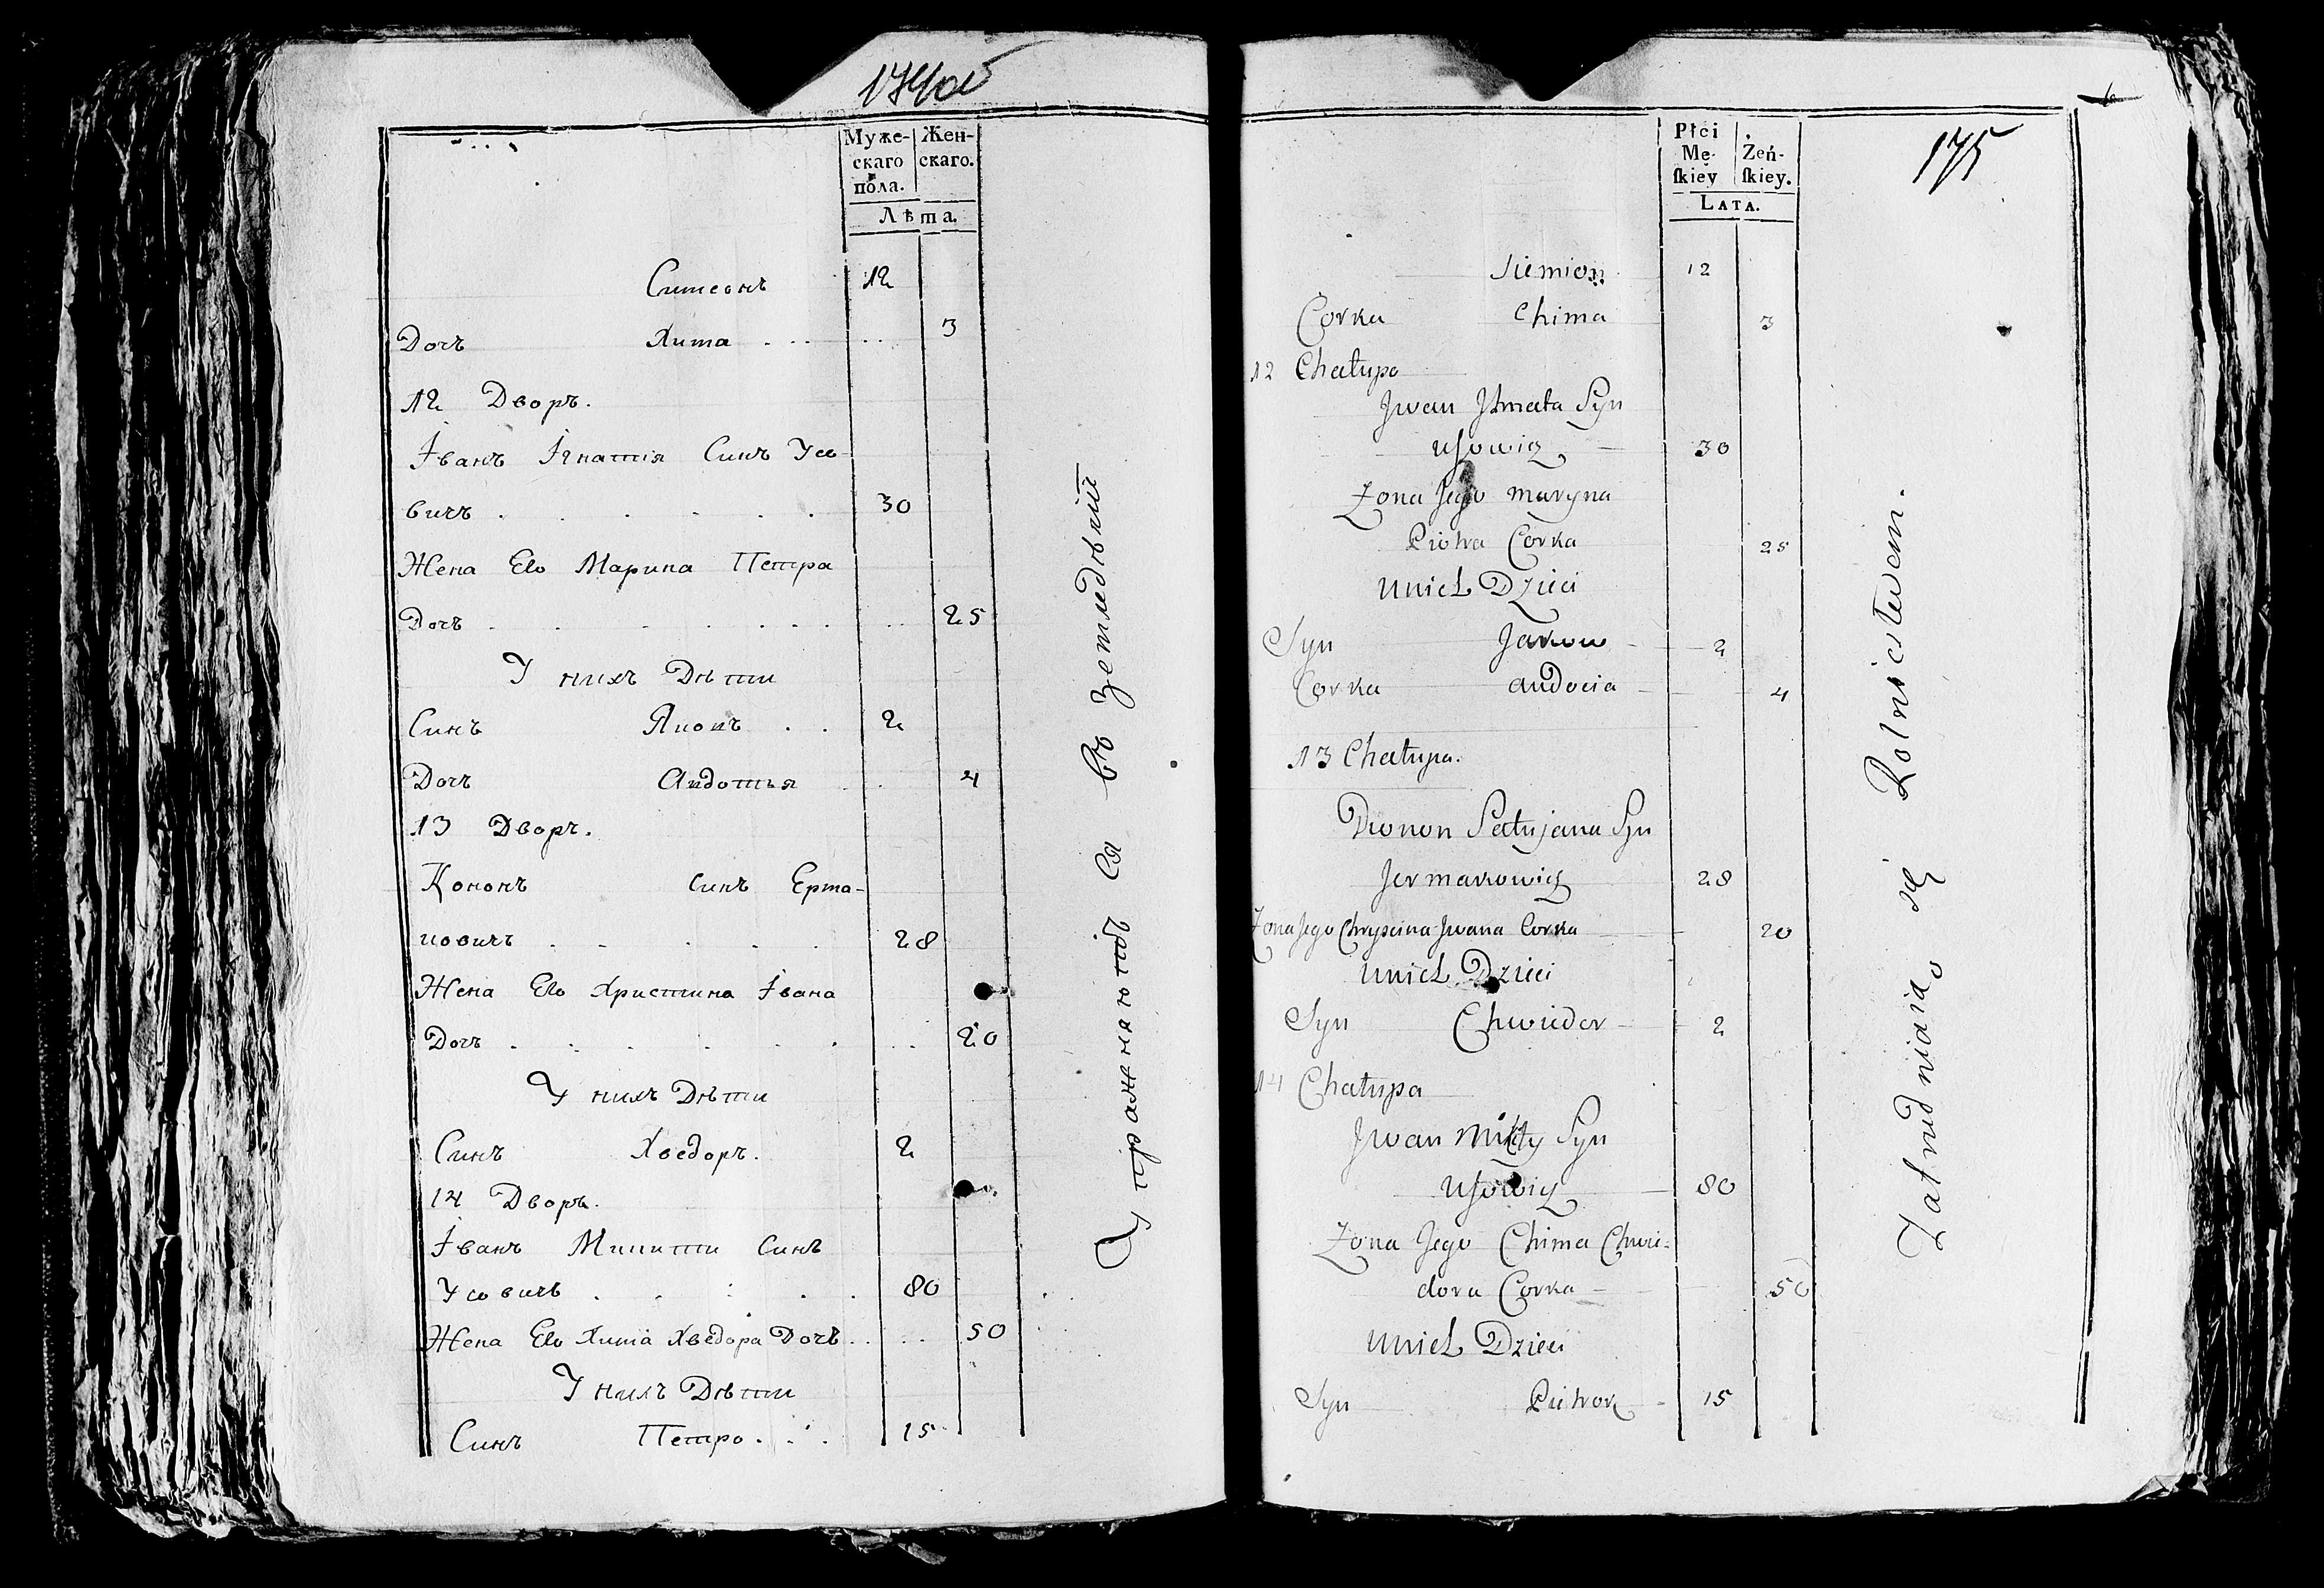 174об
Муже-
скаго
пола.
Жен-
скаго.
Лѣта.
Симеонъ 12
Дочъ Хима . . . . . 3
12 Дворъ.
Іванъ Ігнатія Синъ Усо-
вичъ . . . . . . 30
Жена Его Марина Петра
Дочъ . . . . . . . . 25
У нихъ Дѣти
Синъ Яковъ . . 2
Дочъ Авдотья . . 4
13 Дворъ.
Кононъ синъ Ерма-
ковичъ . . . . . 28
Жена Его Христина Івана
Дочъ . . . . . . . . 20
У нихъ Дѣти
Синъ Хведоръ. 2
14 Дворъ.
Іванъ Микити синъ
Усовичъ . . . . . 80
Жена Его Хима Хведора Дочъ . . . . 50
У нихъ Дѣти
Синъ Петро . . . 15
Упражнаютъ Ся въ Земледѣліи
175
Płci
Mę-
ſkiey
Zeń-
ſkiey.
LATA.
Siemion 12
Corka Chima 3
12 Chałupa
Jwan Syn
Usowicz — 30
Zona Jego Maryna
Piotra Corka 25
Unich Dzieci
Syn Jakow — 2
Corka Audocia — 4
13 Chałupa.
Syn
Jermakowicz 28
Zona Jego Chryscina Jwana Corka 20
Unich Dzieci
Syn Chwiedor — 2
14 Chałupa
Jwan Mikity Syn
Usowicz — 80
Zona Jego Chima Chwie-
dora Corka — 50
Unich Dzieci
Syn Piotrok — 15
Zatrudniaią się Rolnictwem.